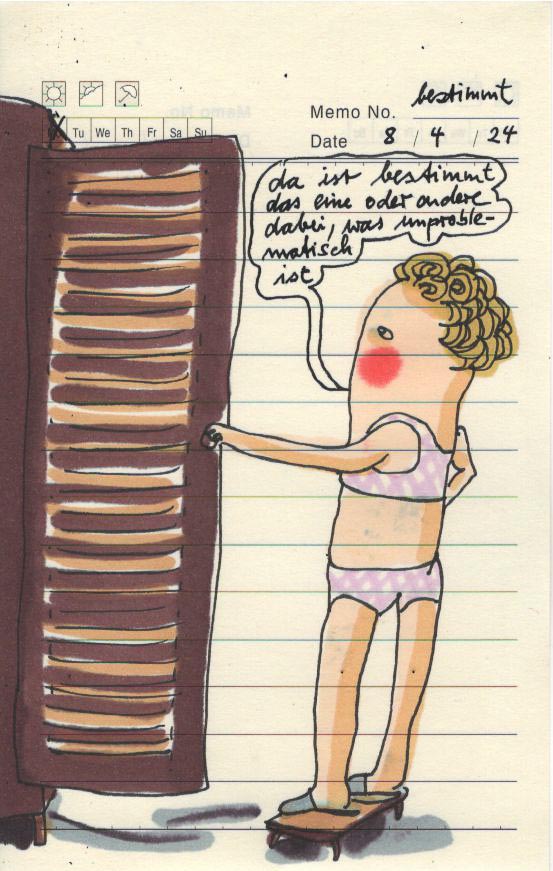 bestimmt
Memo No.
Tu We Th Fr Sa Su
Date 8 / 4 / 24
da ist bestimmt
das eine oder andere
dabei, was unproble-
matisch
ist